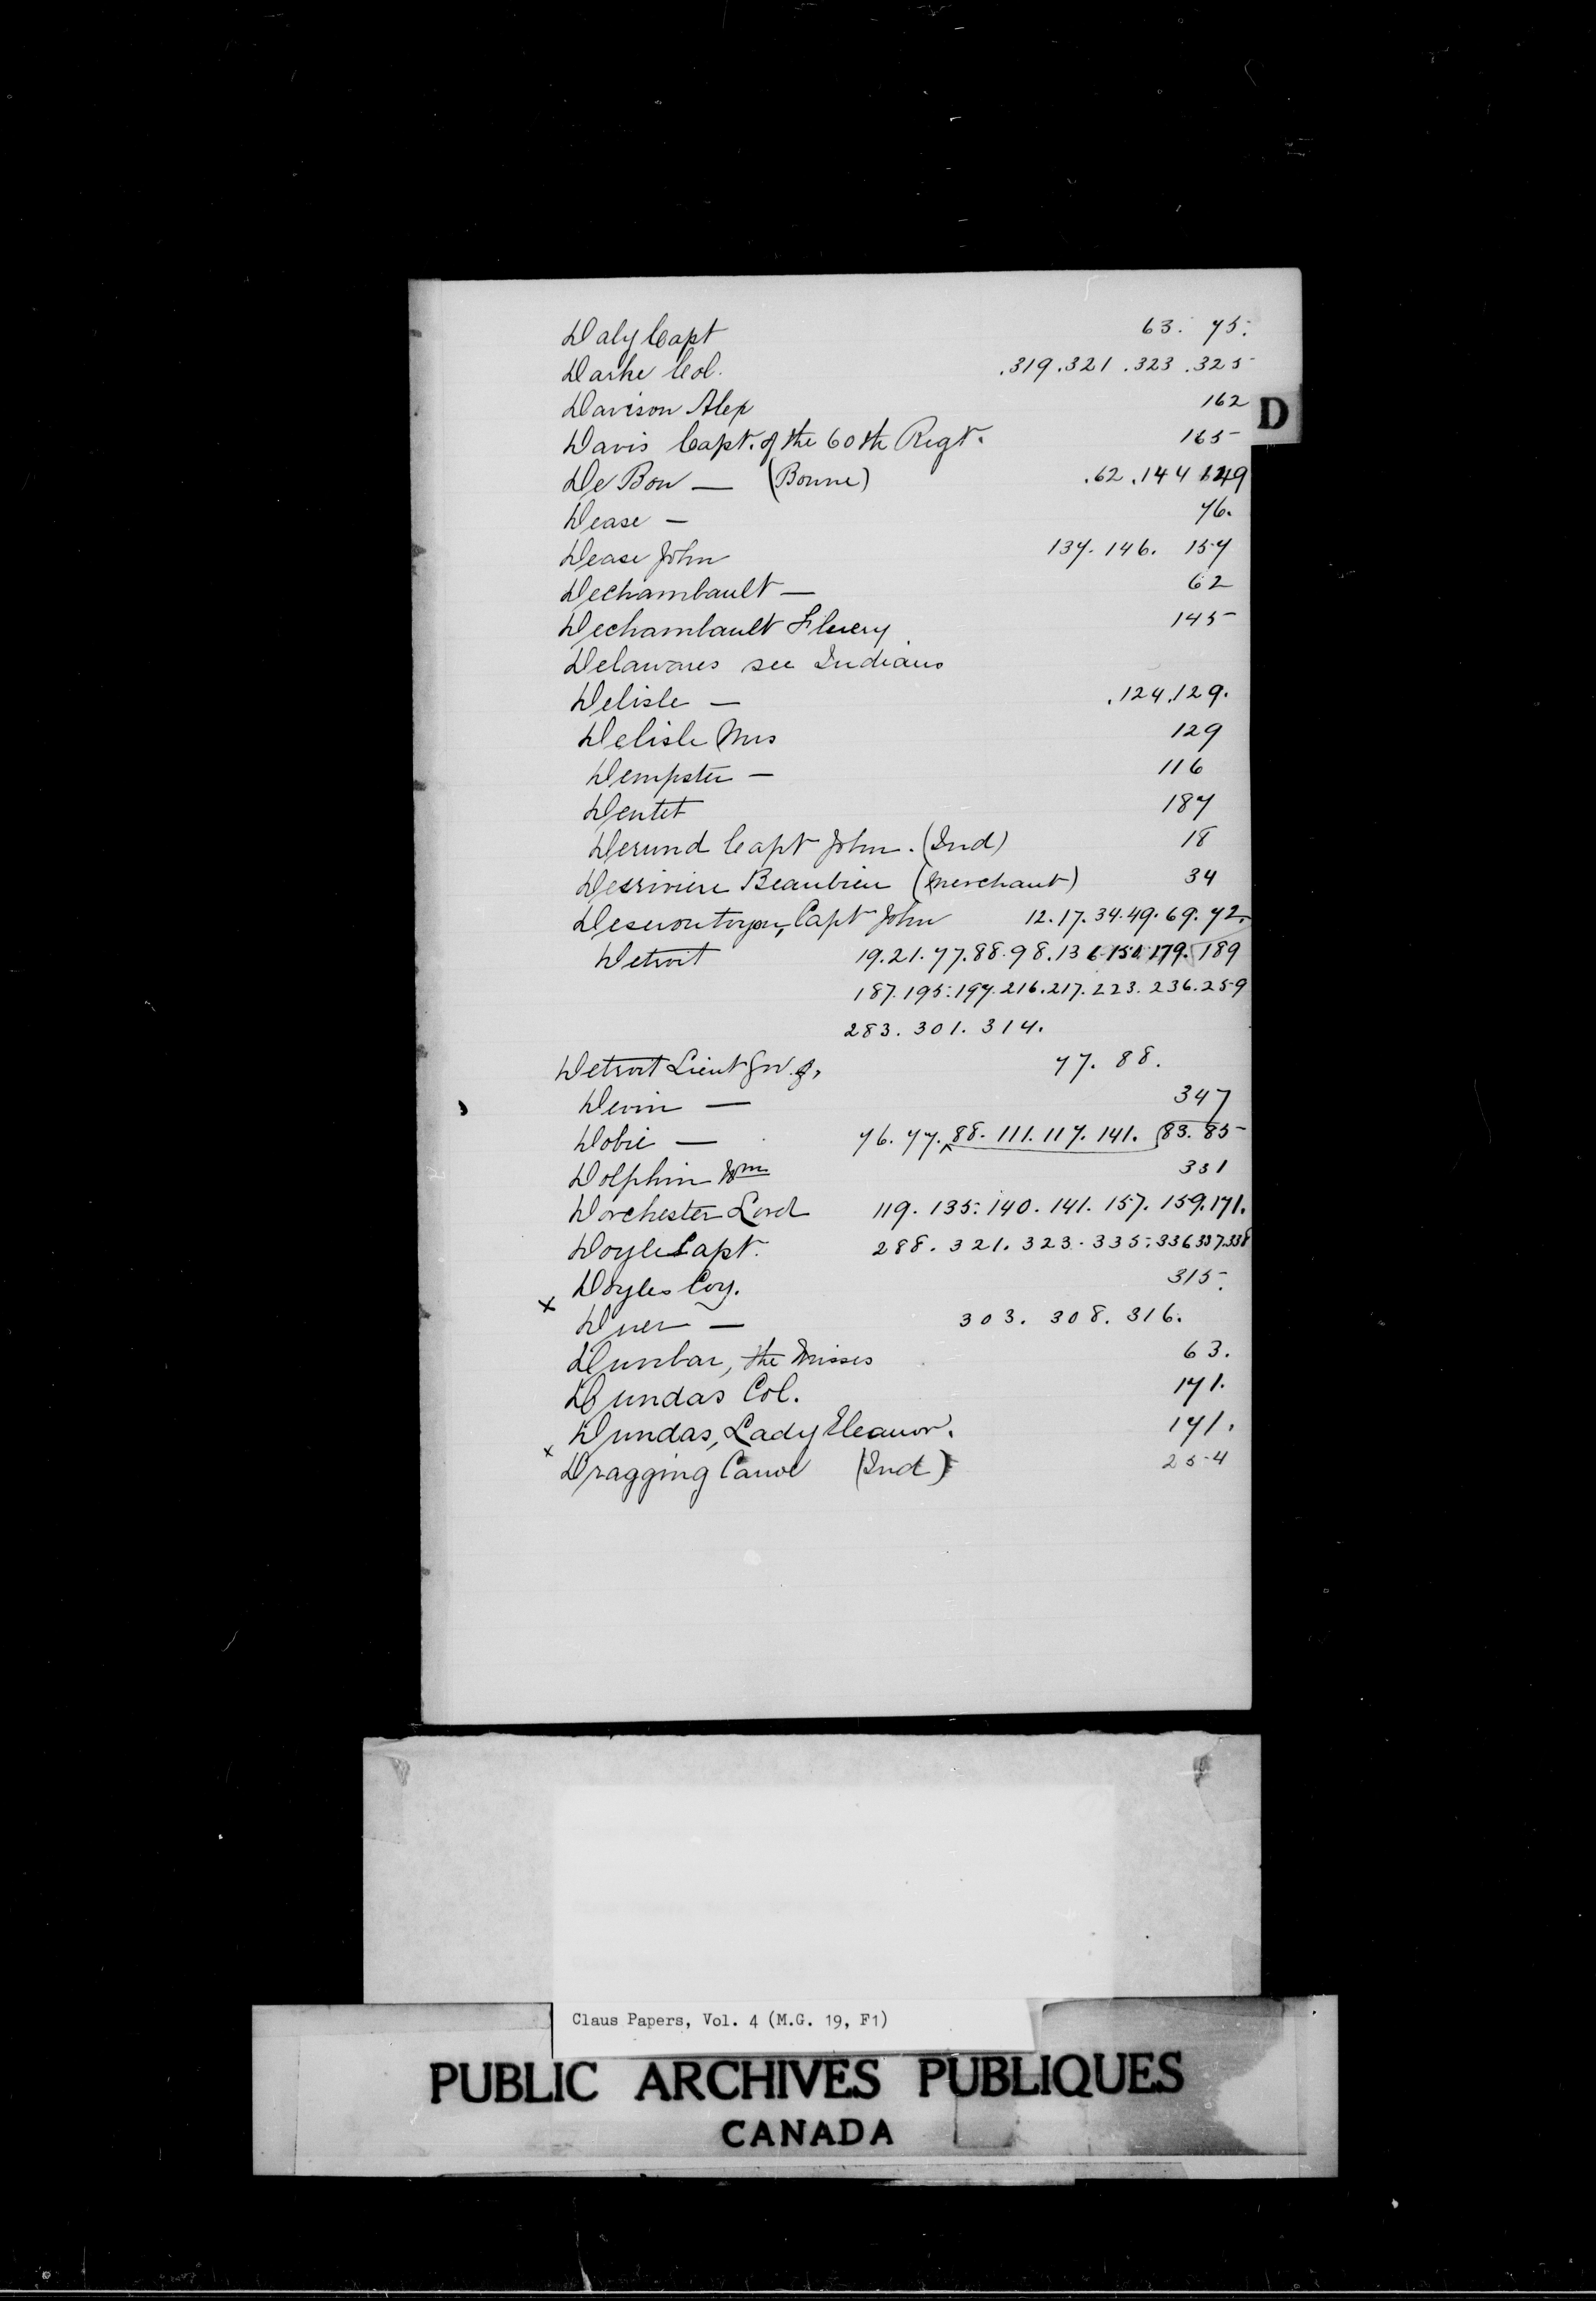 Daly Capt 63. 75.
Darke Col. .319.321.323.325
Davison Alex 162
D
Davis Capt. of the 60th Regt. 165
De Bon — (Bonne) .62.144 149
Dease — 76.
Dease John 137. 146. 157
Dechambault — 62
Dechambault Fleury 145
Delawares see Indians
Delisle — .124.129.
Delisle Mrs 129
Dempster — 116
Dentet 187
Derund Capt John. (Ind) 18
Desriviere Beaubien (Merchant) 34
Deserontoyon, Capt John 12.17.34.49.69.72.
Detroit 19.21.77.88.98.136.150.179.189
187.195.197.216.217.223.236.259
283.301.314.
Detroit Lieut Gov. of, 77. 88.
Devin — 347
Dobie — 76. 77. 88. 111. 117. 141. 83. 85
Dolphin Wm 331
Dorchester Lord 119. 135. 140. 141. 157. 159. 171.
Doyle Capt. 288. 321. 323. 335. 336 337.338
Doyles Coy. 315.
x Duer — 303. 308. 316.
Dunbar, the Misses 63.
Dundas Col. 171.
Dundas, Lady Eleanor. 171.
x Dragging Canoe (Ind) 254
Claus Papers, Vol. 4 (M.G. 19, F1)
PUBLIC ARCHIVES PUBLIQUES
CANADA